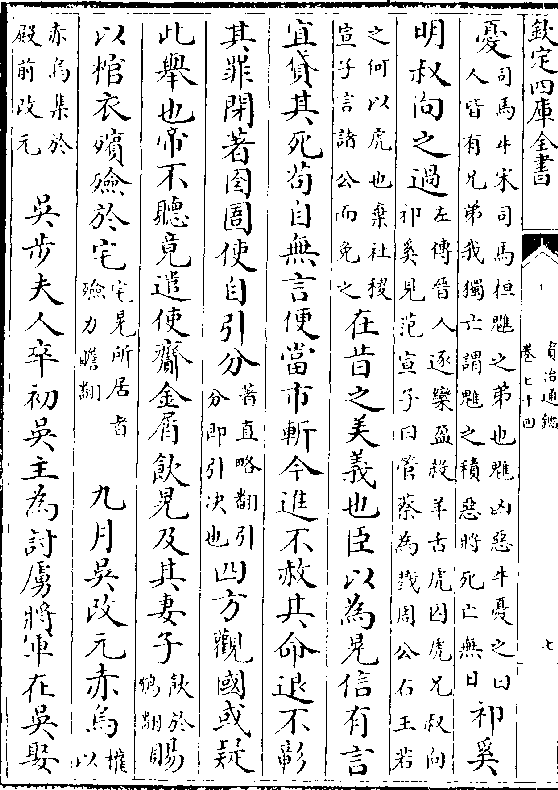 欽定四庫全書
資治通鑑
卷七十四
七
憂司馬牛宋司馬桓魋之弟也魋凶惡牛憂之曰
人皆有兄弟我獨亡謂魋之積惡將死亡無日祁奚
明叔向之過左傳晉人逐欒盈殺羊舌虎囚虎兄叔向
祁奚見范宣子曰管蔡為戮周公右王若
之何以虎也棄社稷
宣子言諸公而免之在昔之美義也臣以為晃信有言
宜貸其死苟自無言便當市斬今進不赦其命退不彰
其罪閉著囹圄使自引分著直略翻引
分即引决也四方觀國或疑
此舉也帝不聽竟遣使齎金屑飲晃及其妻子飲於
鴆翻賜
以棺衣殯殮於宅宅晃所居者
殮力贍翻九月吳改元赤烏以
權
赤烏集於
殿前改元吳步夫人卒初吳主為討虜將軍在吳娶